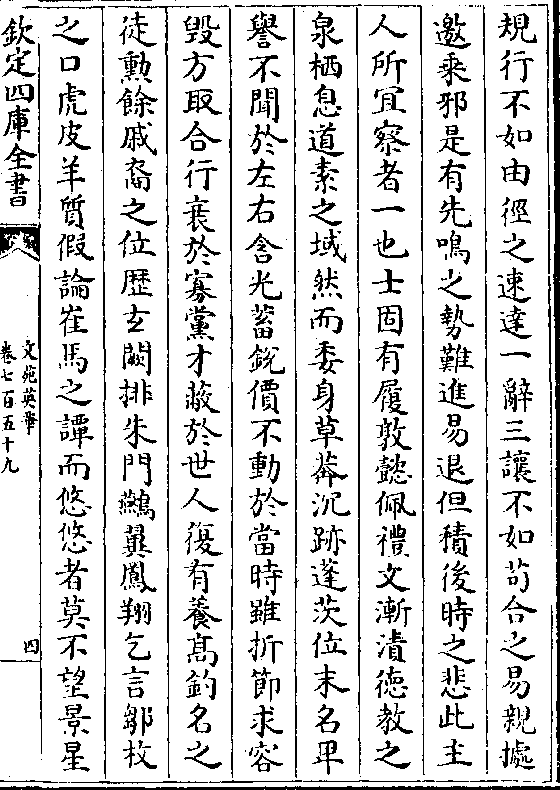 規行不如由徑之速達一辭三讓不如苟合之易親攄
邀乘邪是有先鳴之勢難進易退但積後時之悲此主
人所宜察者一也士固有履敦懿佩禮文漸漬徳教之
泉栖息道素之域然而委身草莽沉跡蓬茨位末名卑
譽不聞於左右含光蓄鋭價不動於當時雖折節求容
毀方取合行衰於寡黨才蔽於世人復有養髙釣名之
徒勲餘戚裔之位歴𤣥闕排朱門鷃翼鳳翔乞言鄒枚
之口虎皮羊質假論崔馬之譚而悠悠者莫不望景星
欽定四庫全書
文苑英華
卷七百五十九
四